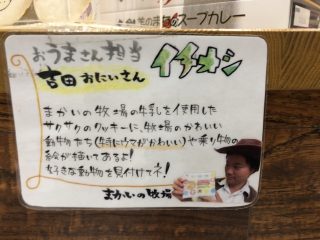 スープカレー
おうまさん担当
吉田おにいさん
イチオシ
まかいの牧場の牛乳を使用した
サクサクのクッキーに、牧場のかわいい
動物たち(特にウマがかわいい)や乗り物の
絵が描いてあるよ!
好きな動物を見付けてネ!
まかいの牧場